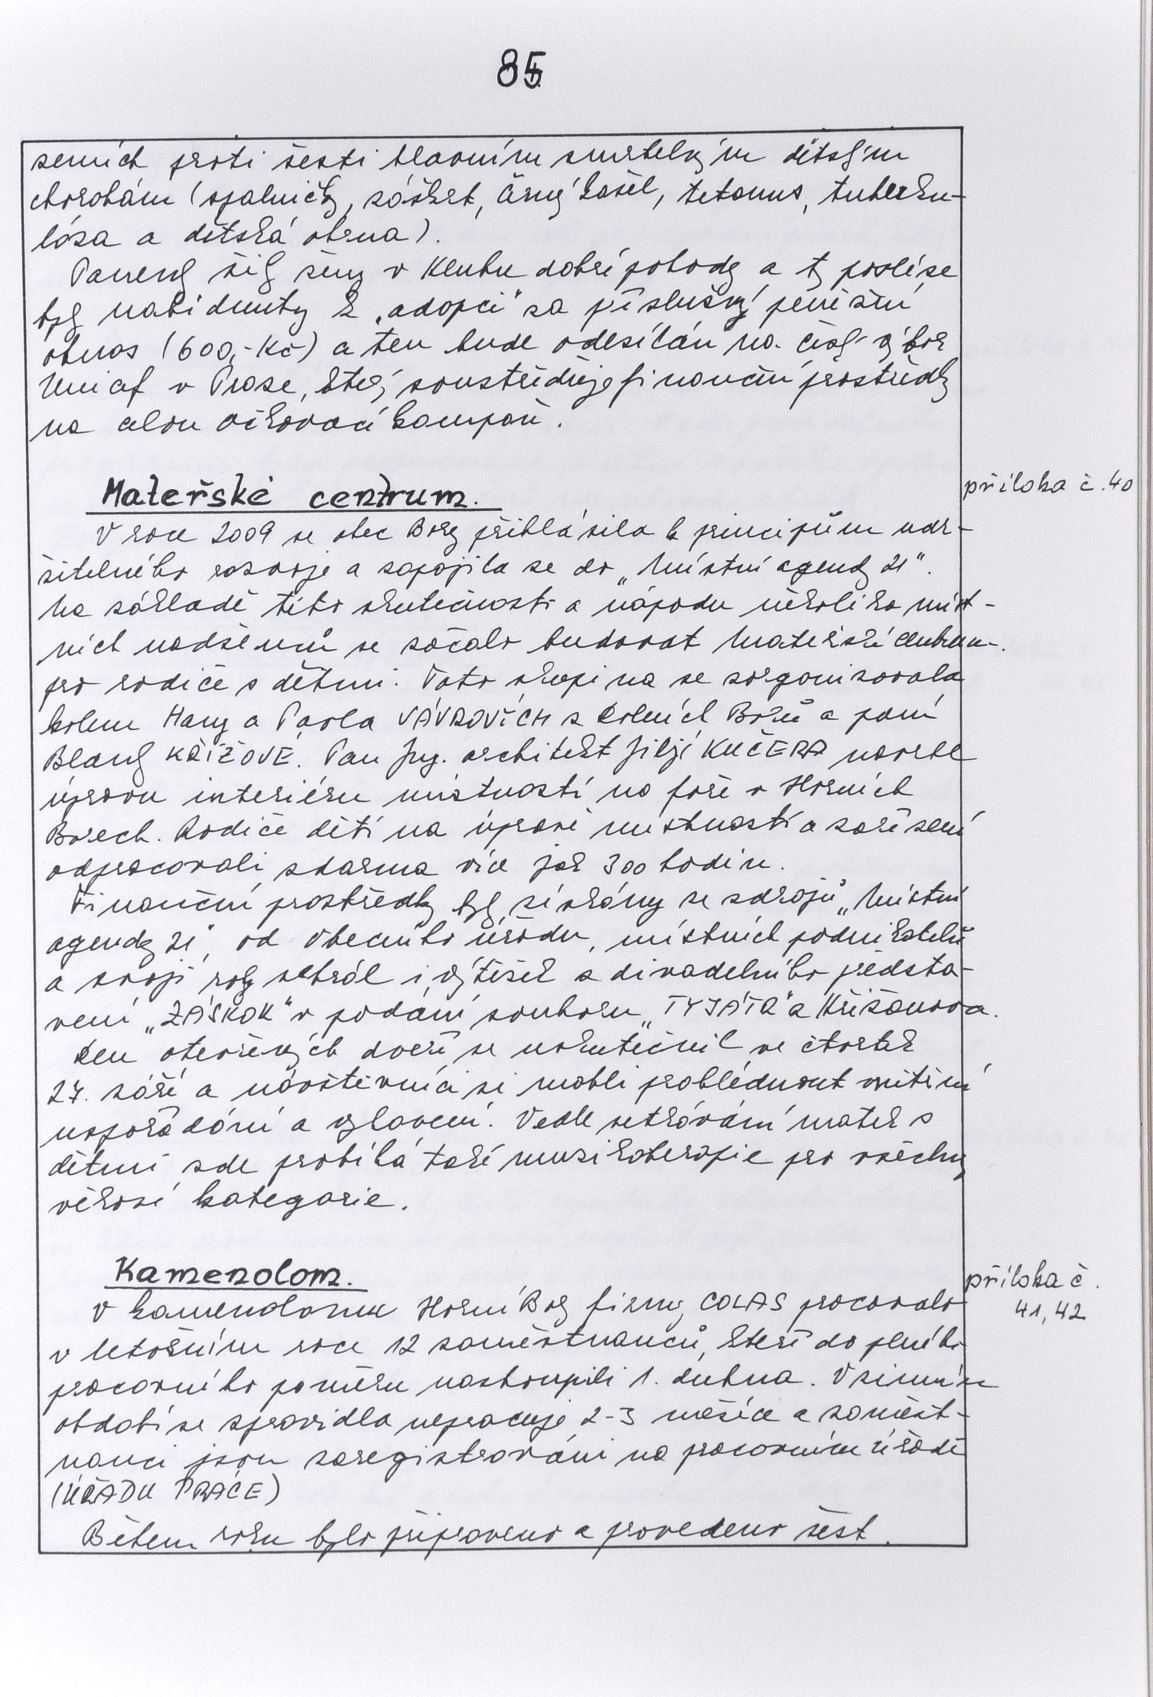 85
zemích proti šesti hlavním smrtelným dětským
chorobám (spalničky, záškrt, černý kašel, tetanus, tuberku-
lóza a dětská obrna).
Panenky šily ženy v Klubu dobré pohody a ty posléze
byly nabídnuty k „adopci" za příslušný peněžní
obnos (600,- Kč) a ten bude odesílán na český výbor
Unicef v Praze, který soustřeďuje finanční prostředky
na celou očkovací kampaň.
Mateřské centrum.
příloha č. 40
V roce 2009 se obec Bory přihlásila k principům udr-
žitelného rozvoje a zapojila se do „Místní agendy 21".
Na základě této skutečnosti a nápadu několika míst-
ních nadšenců se začalo budovat Mateřské centrum
pro rodiče s dětmi. Tato skupina se zorganizovala
kolem Hany a Pavla VÁVROVÝCH z Dolních Borů a paní
Blanky KŘÍŽOVÉ. Pan Ing. architekt Jiljí KUČERA navrhl
úpravu interiéru místností na faře v Horních
Borech. Rodiče dětí na úpravě místností a zařízení
odpracovali zdarma více jak 300 hodin.
Finanční prostředky byly získány ze zdrojů „Místní
agendy 21", od Obecního úřadu, místních podnikatelů
a svoji roly sehrál i výtěžek z divadelního předsta-
vení „ZÁSKOK" v podání souboru „TYJÁTR" z Křižanova.
Den otevřených dveří se uskutečnil ve čtvrtek
27. září a návštěvníci si mohli prohlédnout vnitřní
uspořádání a vybavení. Vedle setkávání matek s
dětmi zde probíhá také muzikoterapie pro všechny
věkové kategorie.
Kamenolom.
příloha č.
41, 42
V kamenolomu Horní Bory firmy COLAS pracovalo
v letošním roce 12 zaměstnanců, kteří do plného
pracovního poměru nastoupili 1. dubna. V zimním
období se zpravidla nepracuje 2-3 měsíce a zaměst-
nanci jsou zaregistrováni na pracovním úřadě
(ÚŘADU PRÁCE)
Během roku bylo připraveno a provedeno šest